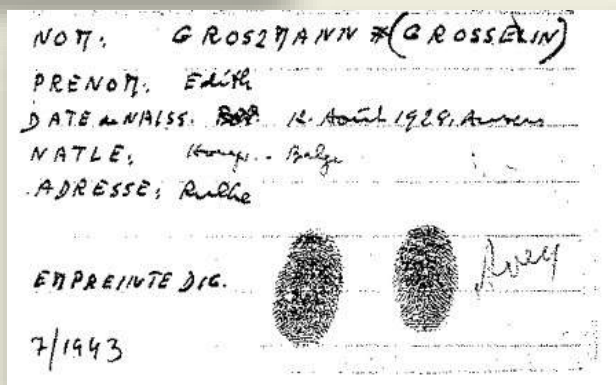 NOM: GROSZMANN (GROSSELIN)
PRENOM: Edith
DATE de NAISS. 12 Août 1929, Anvers
NATLE: Hongr. - Belge
ADRESSE: Rulhe
EMPREINTE DIG.
7/1943